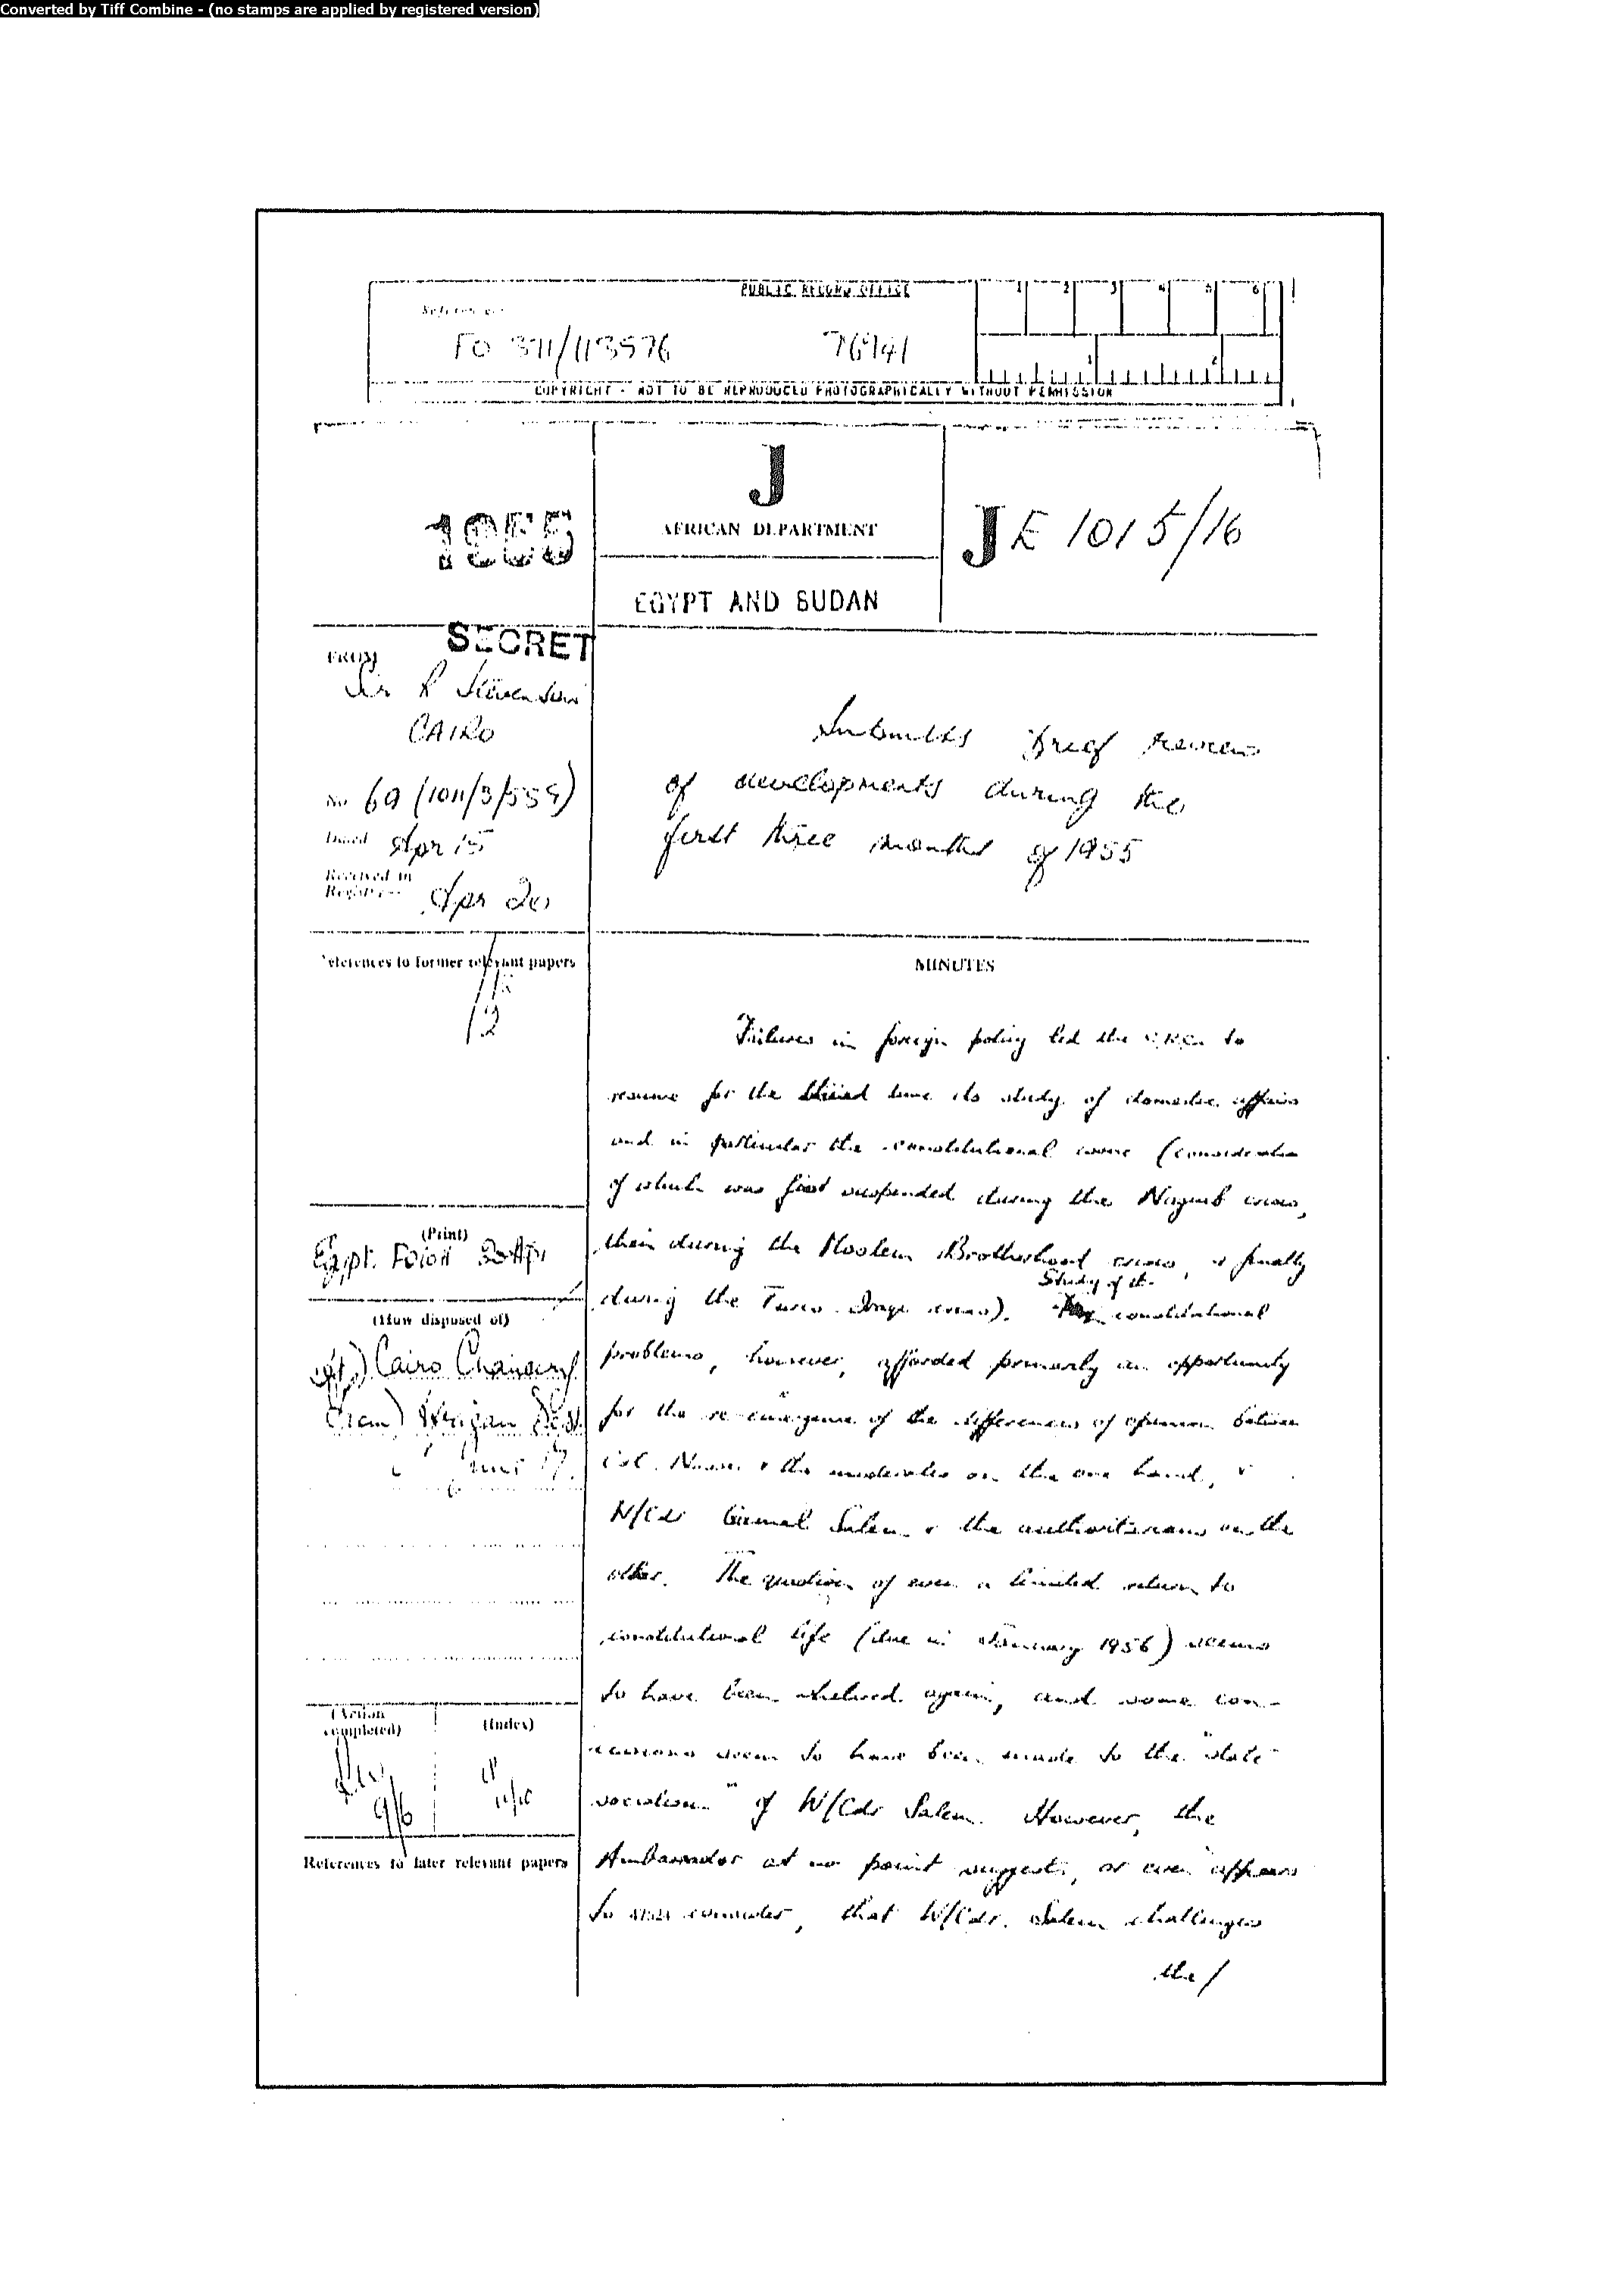 Converted by Tiff Combine - (no stamps are applied by registered version)
PUBLIC RECORD OFFICE
1 2 3 4 5 6
Reference:-
FO 371/113576
COPYRIGHT - NOT TO BE REPRODUCED PHOTOGRAPHICALLY WITHOUT PERMISSION
1955
J
AFRICAN DEPARTMENT
EGYPT AND SUDAN
JE 1015/16
SECRET
FROM
Sir R Stevenson
CAIRO
No 69
Dated Apr 15
Received in
Registry Apr 20
Submits Brief Review
of developments during the
first three months of 1955
References to former relevant papers
MINUTES
Failures in foreign policy led the to
resume for the third time its study of domestic affairs
and in particular the constitutional issue (consideration
of which was first suspended during the Naguib crisis,
then during the Moslem Brotherhood crisis, & finally
Study of the
during the Turco-Iraqi crisis). constitutional
problems, however, afforded primarily an opportunity
for the re-emergence of the differences of opinion between
Col. Nasser & the moderates on the one hand, &
W/Cdr Gamal Salem & the authoritarians on the
other. The question of even a limited return to
constitutional life (due in January 1956) seems
to have been shelved again, and some con-
cessions seem to have been made to the "state
socialism" of W/Cdr Salem. However, the
Ambassador at no point suggests, or even appears
to consider, that W/Cdr. Salem challenges
the/
(Print)
Egypt.
(How disposed of)
Cairo Chancery
(Action
completed)
(Index)
9/6
References to later relevant papers